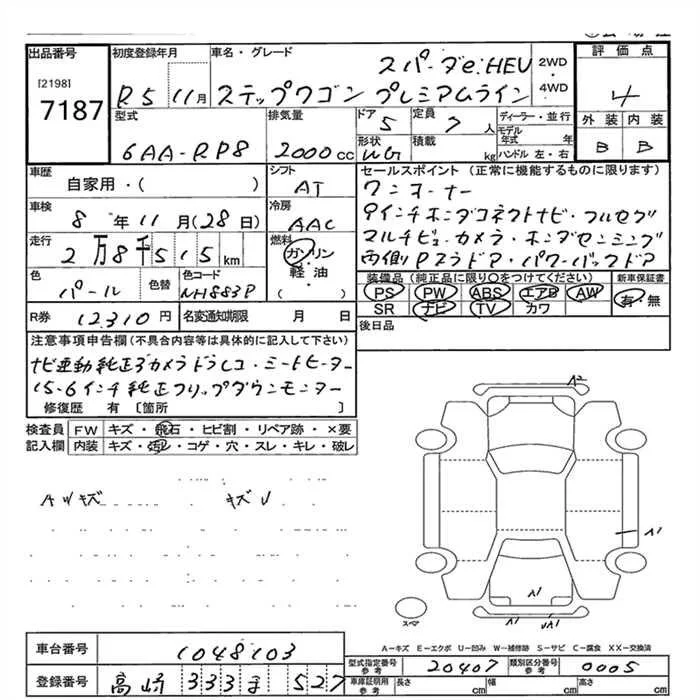 出品番号
[2198]
7187
初度登録年月
R5 11月
車名・グレード
スパーダe:HEV
ステップワゴン プレミアムライン
2WD
4WD
評価点
4
外装 内装
B B
型式
6AA-RP8
排気量
2000cc
ドア
5
定員
7人
ディーラー・並行
モデル年式 年
形状
WG
積載
kg
ハンドル 左・右
車歴
自家用・( )
シフト
AT
セールスポイント (正常に機能するものに限ります)
ワンオーナー
9インチホンダコネクトナビ・フルセグ
マルチビューカメラ・ホンダセンシング
両側Pスラドア・パワーバックドア
車検
8年11月(28日)
冷房
AAC
走行
2万8千515km
燃料
ガソリン
・軽油・
( )
色
パール
色替
色コード
NH883P
装備品(純正品に限り○をつけてください)
PS PW ABS エアB AW
SR ナビ TV カワ
新車保証書
有・無
R券
12,310円
名変通知期限 月 日
後日品
注意事項申告欄(不具合内容等は具体的に記入して下さい)
ナビ連動純正ダカメラドラレコ・シートヒーター
15.6インチ純正フリップダウンモニター
修復歴 有〔箇所 〕
検査員 FW キズ・飛石・ヒビ割・リペア跡・×要
記入欄 内装 キズ・汚レ・コゲ・穴・スレ・キレ・破レ
AWキズ キズU
A2
A1
A1
UA1
スペア
A-キズ E-エクボ U-凹み W-補修跡 S-サビ C-腐食 XX-交換済
車台番号
1048103
型式指定番号
参考
20407
類別区分番号
参考
0005
登録番号
高崎 333 ま 527
車庫証明用
参考
長さ cm
幅 cm
高さ cm